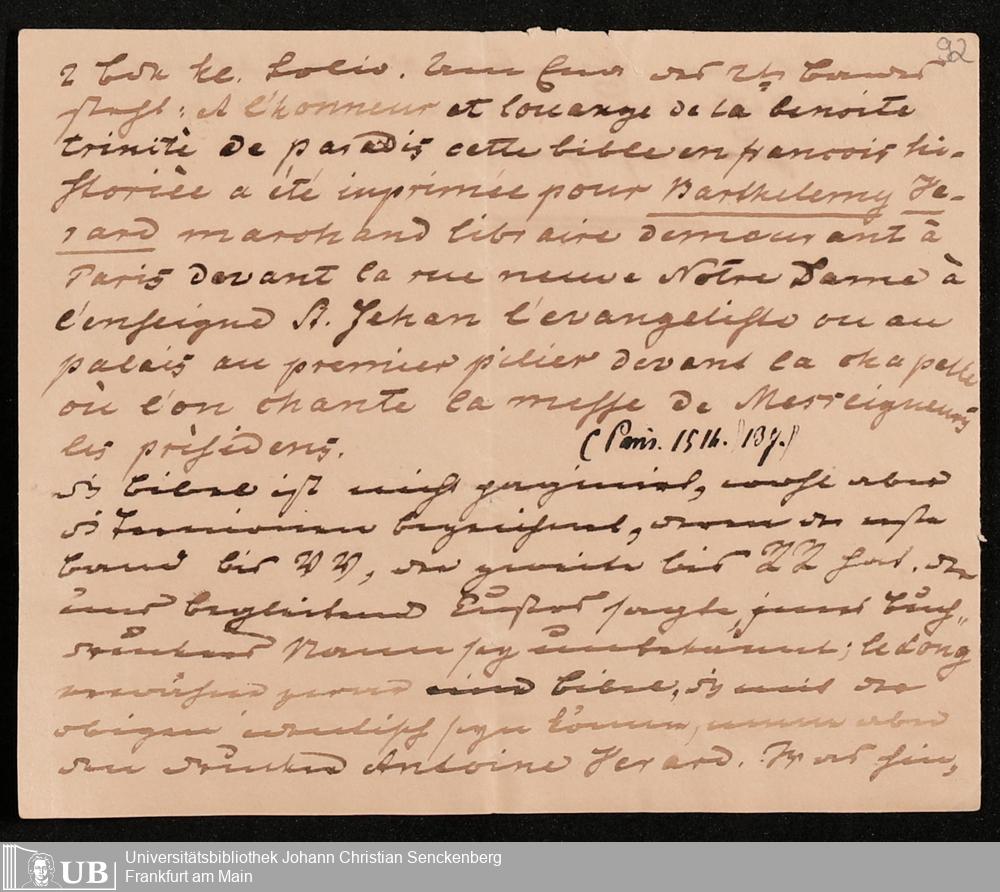 92
2 bde kl. Folio. Am Ende des 2ten Bandes
steht: A l'honneur et louange de la benoite
trinitè de paradis cette bible en francois hi-
storièe a été inprimée pour Barthelemy Ve-
rard marchand libraire demeurant à
Paris devant la rue neuve Notre Dame à
l'enseigne St. Jehan l'evangeliste ou au
palais au premier pilier devant la chapelle
où l'on chante la messe de Messeigneurs
les prèsidens. (Paris. 1514.)
die bibel ist nicht paginirt, wohl aber
die Ternionen bezeichnet, deren der erste
band bis VV, der zweite bis ZZ hat. der
uns begleitende Custos sagte, jenes Buch-
druckers Namen sey unbekannt; leLong
erwähne zwar eine bibel, die mit der
obigen identisch seyn könne, nenne aber
den drucker Antoine Verard.
Universitätsbibliothek Johann Christian Senckenberg
Frankfurt am Main
UB